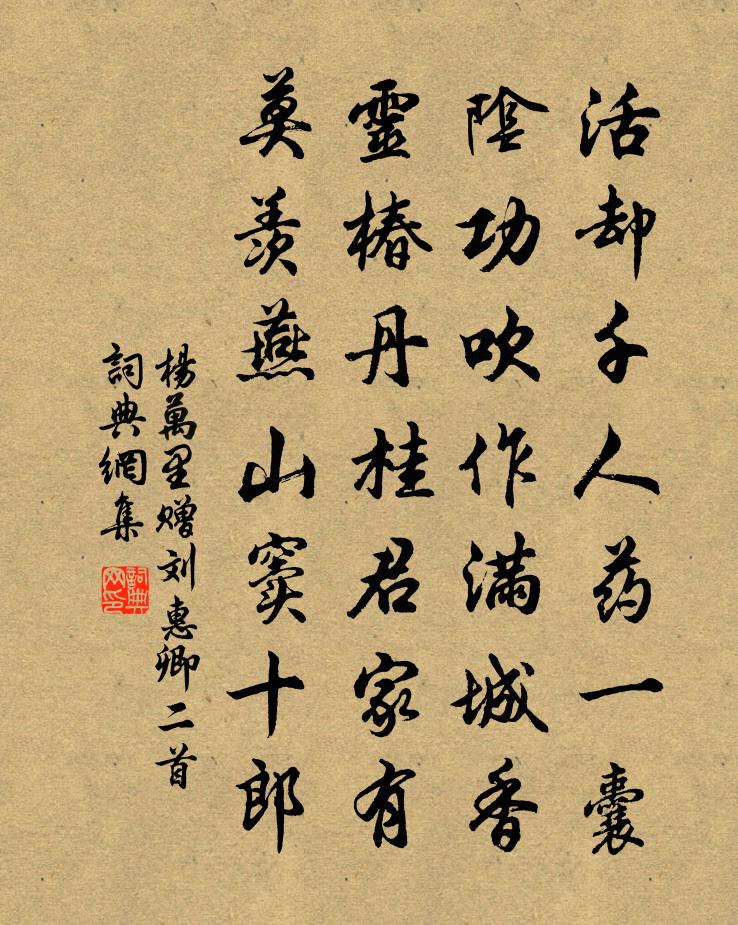 活却千人药一囊
陰功吹作滿城香
靈椿丹桂君家有
莫羨燕山竇十郎
楊萬里赠刘惠卿二首
詞典網集
詞典网印